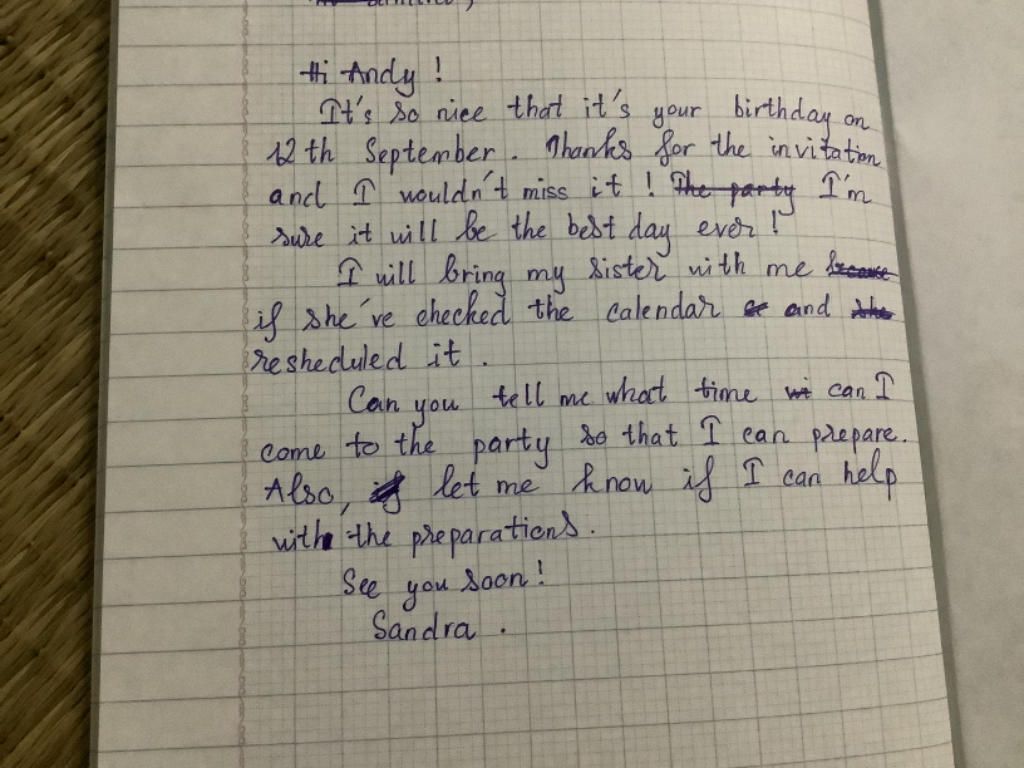 Hi Andy!
It's so nice that it's your birthday on
12th September. Thanks for the invitation
and I wouldn't miss it! The party I'm
sure it will be the best day ever!
I will bring my sister with me because
if she've checked the calendar or and she
resheduled it.
Can you tell me what time wi can I
come to the party so that I can prepare.
Also, if let me know if I can help
with the preparations.
See you soon!
Sandra.